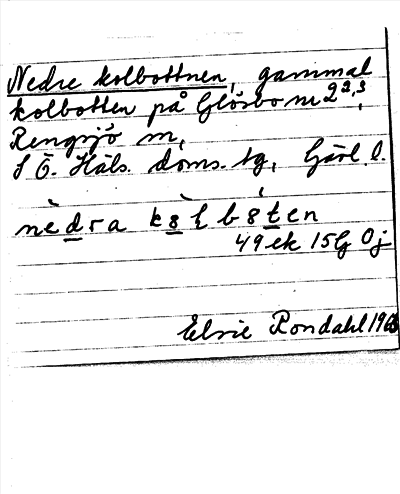 Nedre kolbottnen, gammal
kolbotten på Glösbo nr 2 2,3,
Rengsjö sn,
S Ö. Häls. doms. tg, Gävl. l.
nèdra kòlbóten
49 ek 15G Oj
Elsie Rondahl 1966